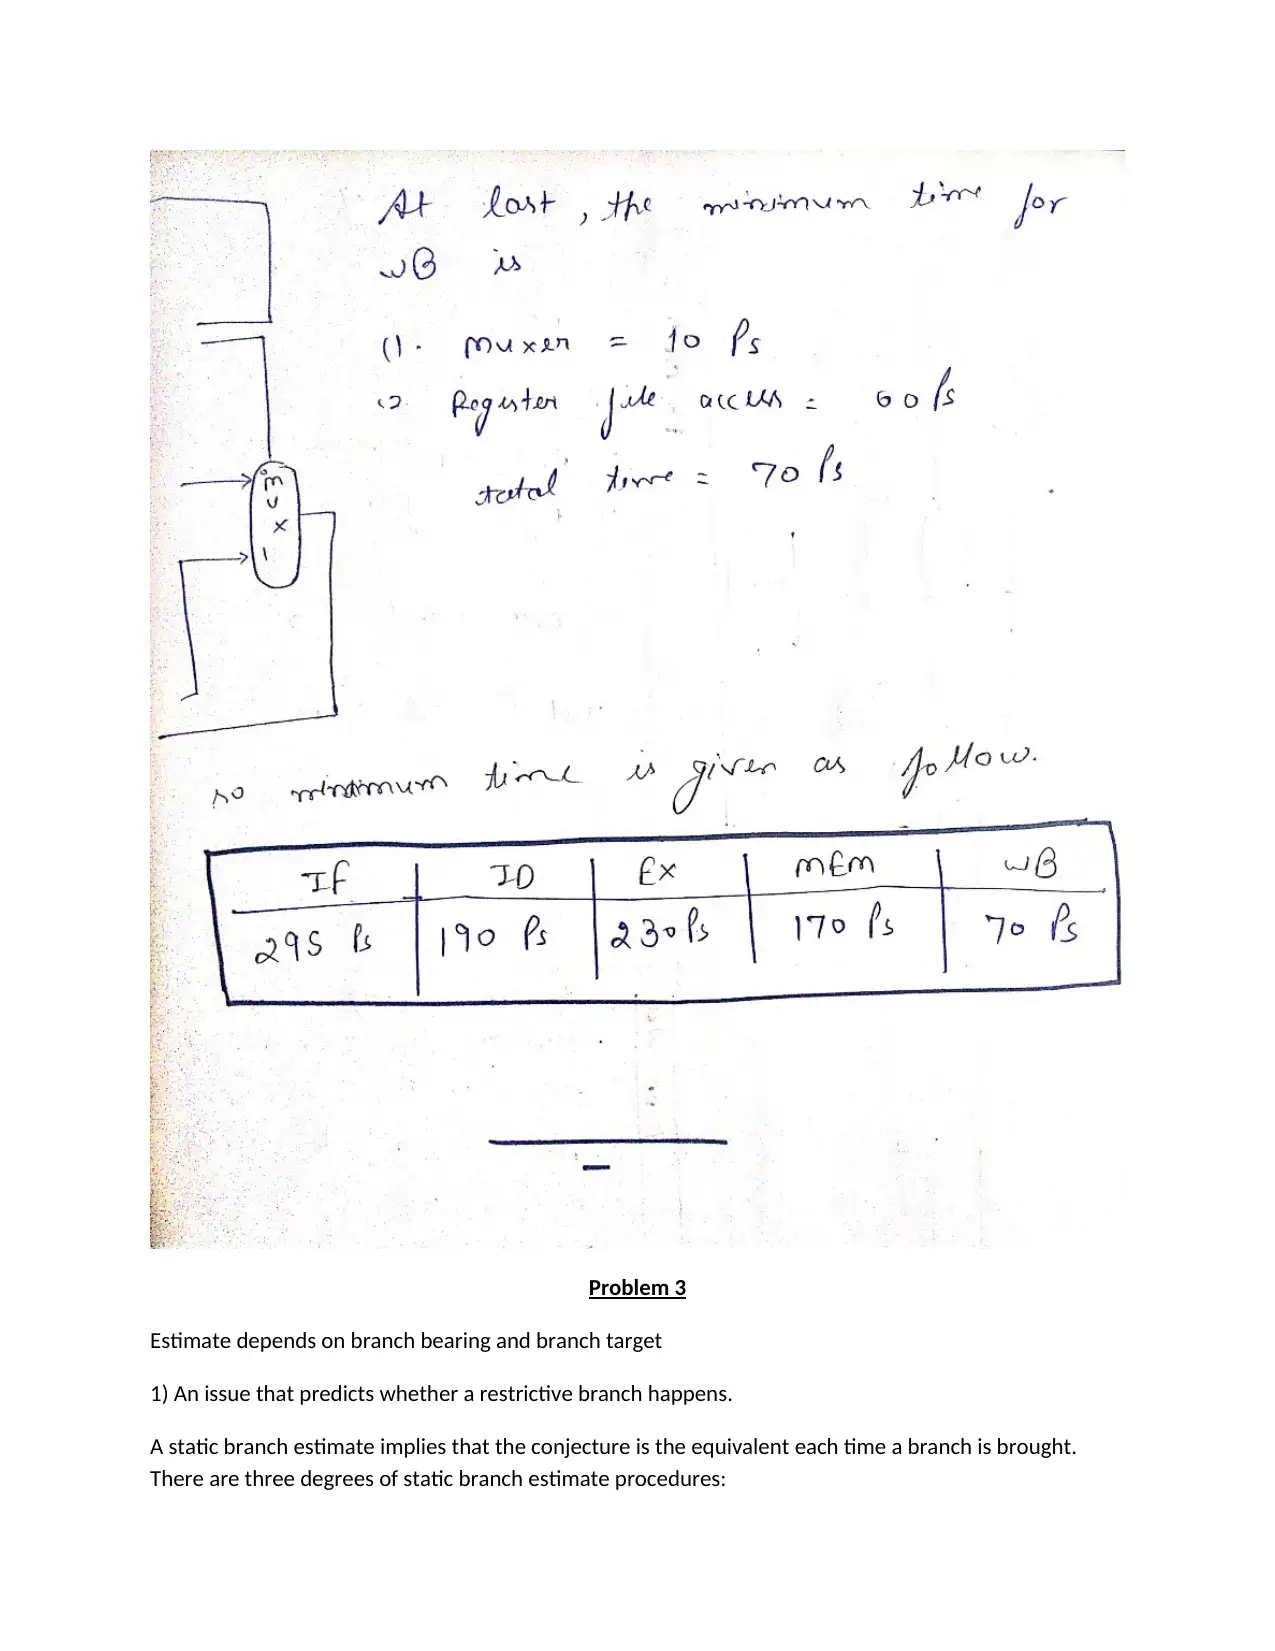 At last, the minimum time for
WB is
(1. muxer = 10 Ps
(2. Register file access = 60 Ps
total time = 70 Ps
mux
1
so minimum time is given as follow.
IF ID EX MEM WB
295 Ps 190 Ps 230 Ps 170 Ps 70 Ps
Problem 3
Estimate depends on branch bearing and branch target
1) An issue that predicts whether a restrictive branch happens.
A static branch estimate implies that the conjecture is the equivalent each time a branch is brought.
There are three degrees of static branch estimate procedures: